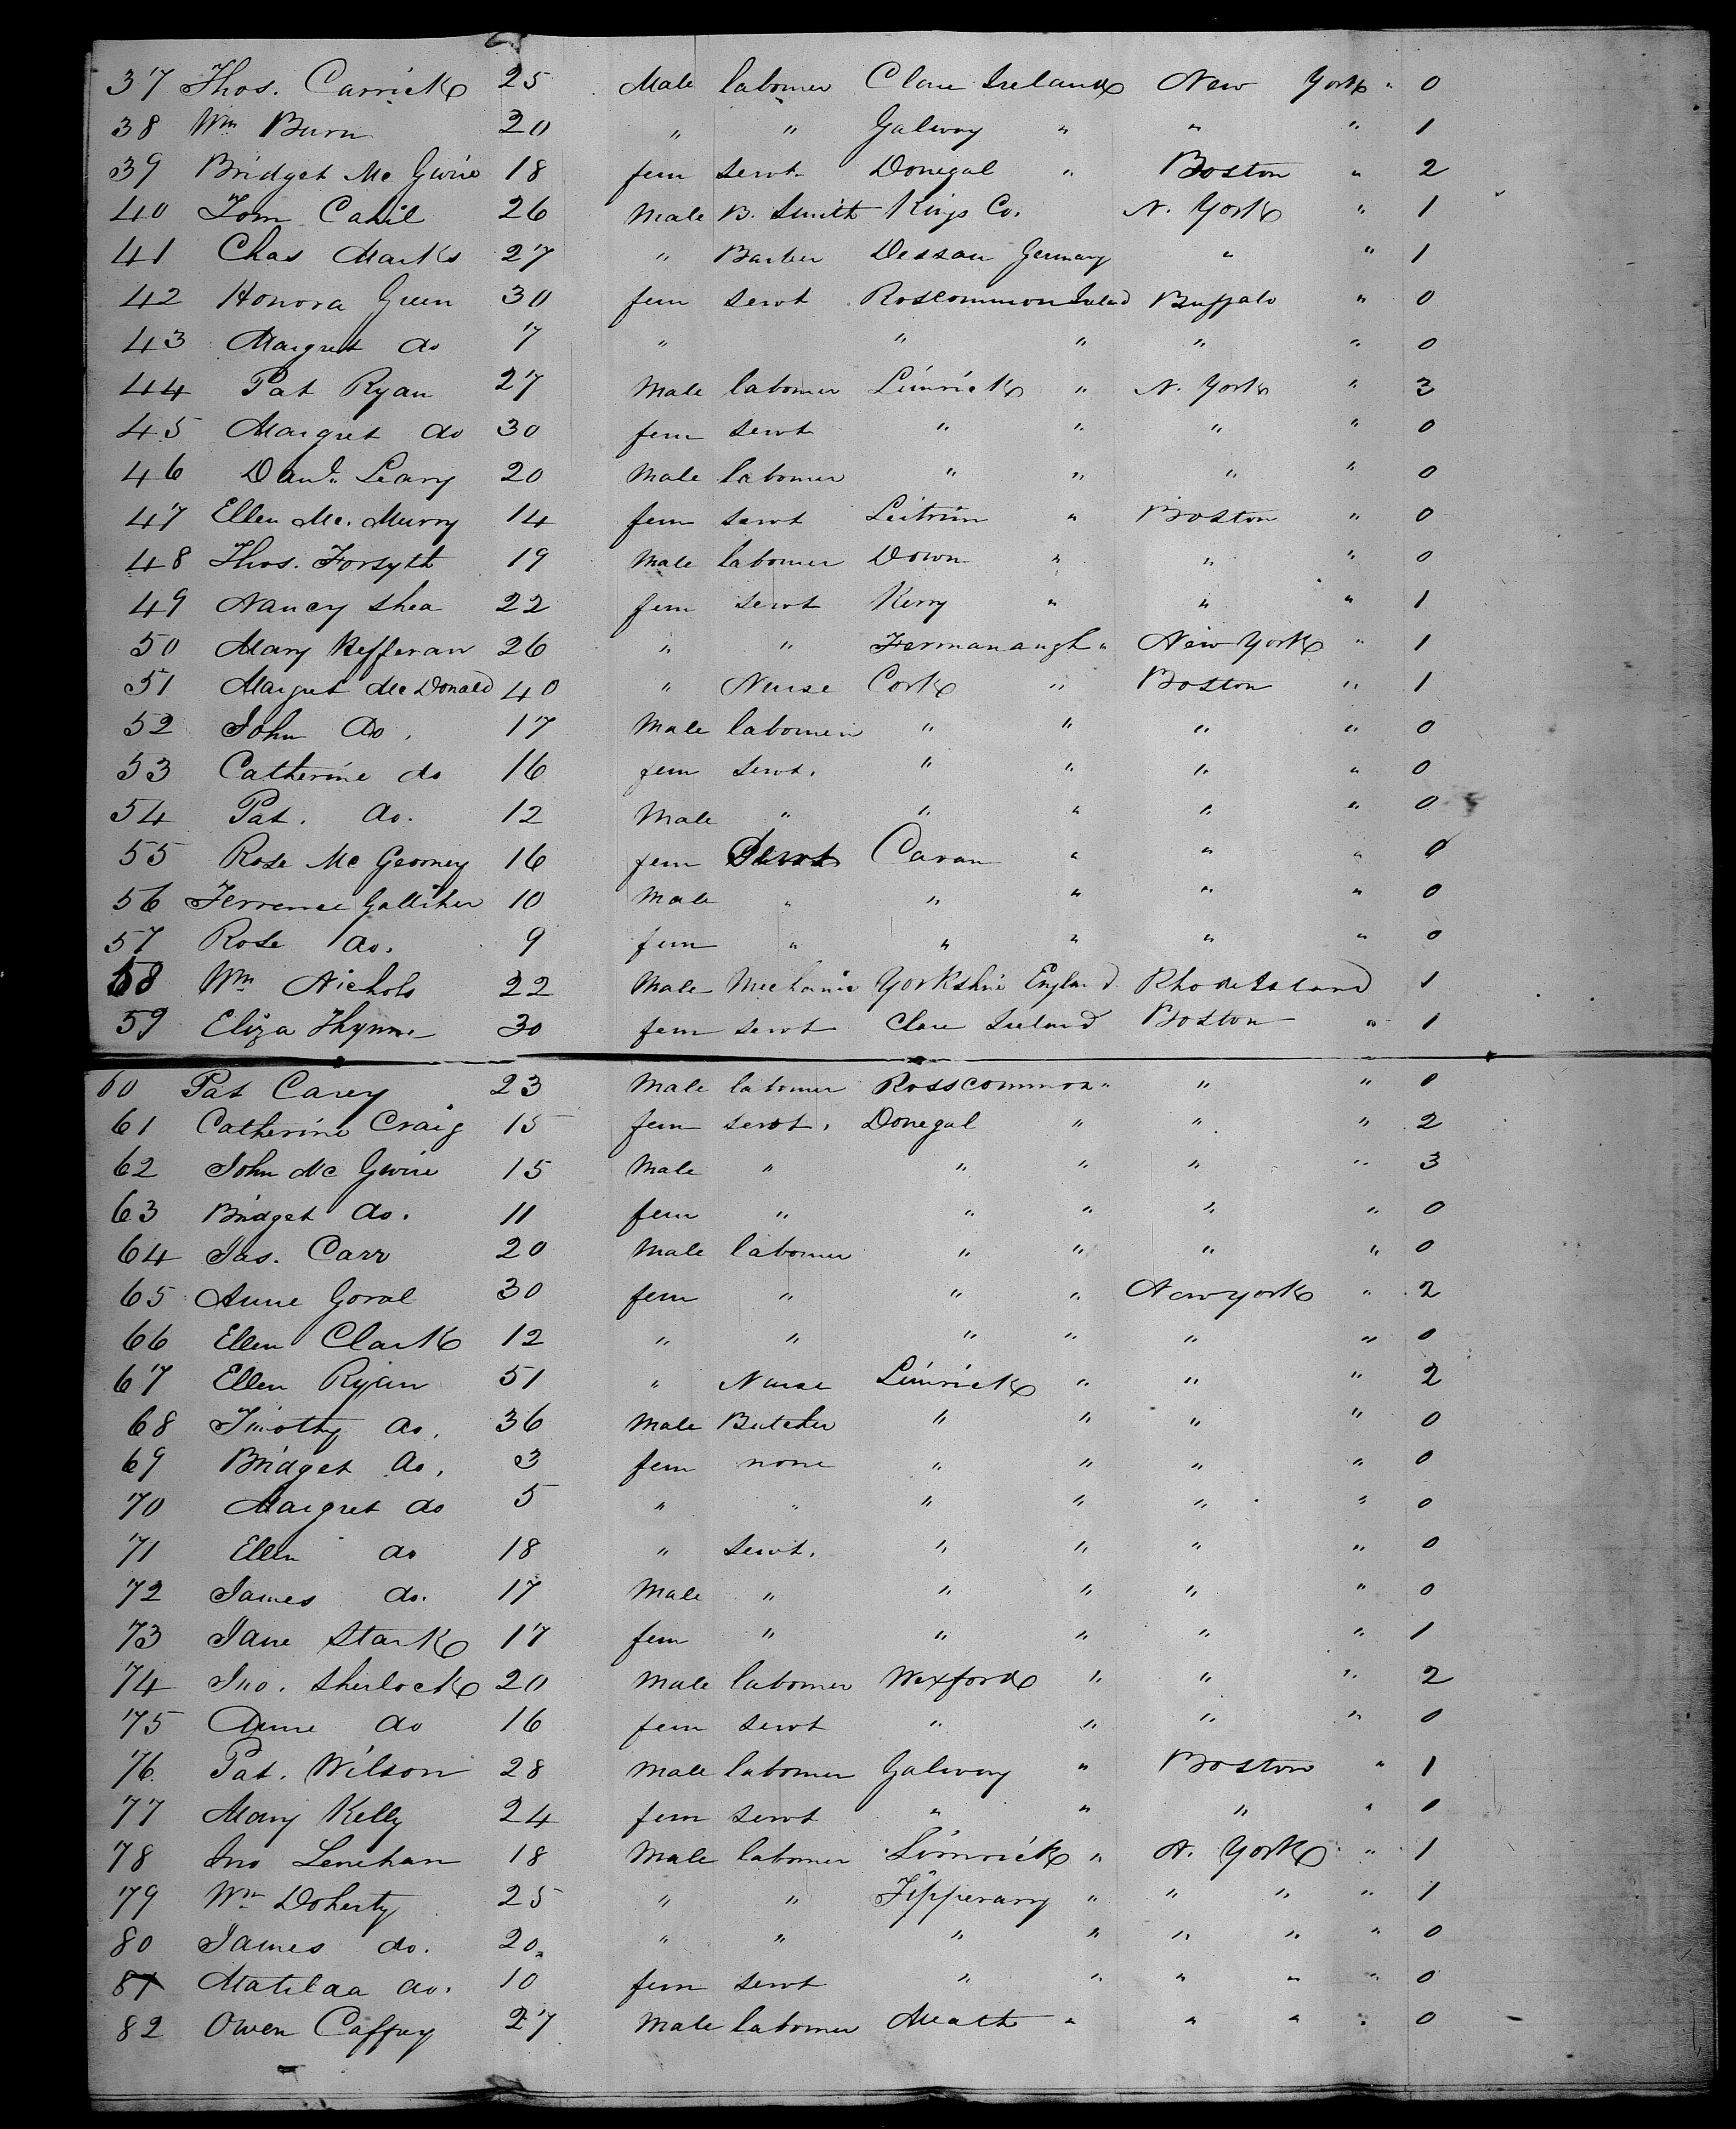 37 Thos. Carrick 25 Male labourer Clare Ireland New York " 0
38 Wm Burn 20 " " Galway " " " 1
39 Bridget Mc Gwire 18 fem servt Donegal " Boston " 2
40 Tom Cahil 26 Male B. Smith Kings Co. N. York " 1
41 Chas Marks 27 " Barber Dessau Germany " " 1
42 Honora Green 30 fem servt Roscommon Ireland Buffalo " 0
43 Margret do 7 " " " " " 0
44 Pat Ryan 27 Male labourer Limrick " N. York " 3
45 Margret do 30 fem servt " " " " 0
46 Danl. Leary 20 Male labourer " " " " 0
47 Ellen Mc. Murry 14 fem servt Leitrim " Boston " 0
48 Thos. Forsyth 19 Male labourer Down " " " 0
49 Nancy Shea 22 fem servt Kerry " " " 1
50 Mary Hefferan 26 " " Fermanaugh " New York " 1
51 Margret Mc Donald 40 " Nurse Cork " Boston " 1
52 John do. 17 Male labourer " " " " 0
53 Catherine do 16 fem servt. " " " " 0
54 Pat. do. 12 Male " " " " " 0
55 Rose Mc 16 fem Servt Cavan " " " 0
56 Terrence Galliher 10 Male " " " " " 0
57 Rose do. 9 fem " " " " " 0
58 Wm Nichols 22 Male Mechanic Yorkshire England Rhode Island 1
59 Eliza Thynne 30 fem servt Clare Ireland Boston " 1
60 Pat Carey 23 Male labourer Rosscommon " " " 0
61 Catherine Craig 15 fem servt. Donegal " " " 2
62 John Mc Gwire 15 Male " " " " " 3
63 Bridget do. 11 fem " " " " " 0
64 Jas. Carr 20 Male labourer " " " " 0
65 Anne Goral 30 fem " " " New york " 2
66 Ellen Clark 12 " " " " " " 0
67 Ellen Ryan 51 " Nurse Limrick " " " 2
68 Timothy do. 36 Male Butcher " " " " 0
69 Bridget do. 3 fem none " " " " 0
70 Margret do 5 " " " " " " 0
71 Ellen do 18 " servt. " " " " 0
72 James do. 17 Male " " " " " 0
73 Jane Stark 17 fem " " " " " 1
74 Jno. Sherlock 20 Male labourer Wexford " " " 2
75 Anne do 16 fem servt " " " " 0
76. Pat. Wilson 28 Male labourer Galway " Boston " 1
77 Mary Kelly 24 fem servt " " " " 0
78 Jno Lenehan 18 Male labourer Limrick " N. York " 1
79 Wm Doherty 25 " " Tipperary " " " " 1
80 James do. 20 " " " " " " " 0
81 Matilda do. 10 fem servt " " " " " 0
82 Owen Caffrey 27 Male labourer Meath " " " " 0